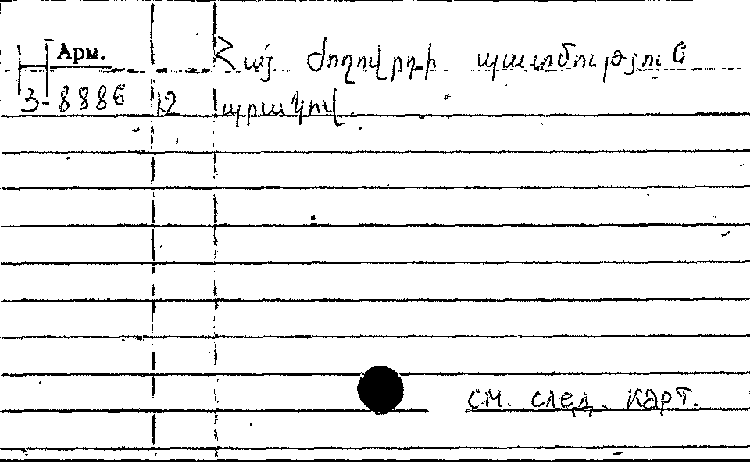 Арм. Հայ ժողովրդի պատմություն
3-8886 12 պրակով.
см. след. карт.